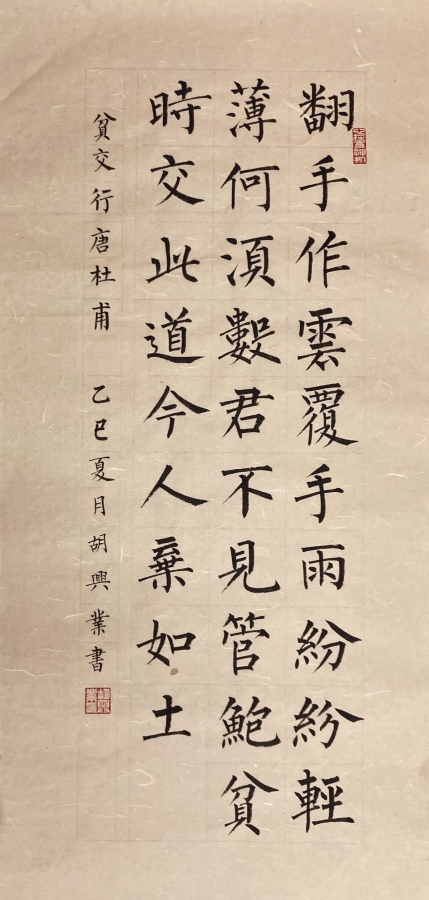 翻手作雲覆手雨紛紛輕
薄何須數君不見管鮑貧
時交此道今人棄如土
貧交行唐杜甫 乙巳夏月胡興業書